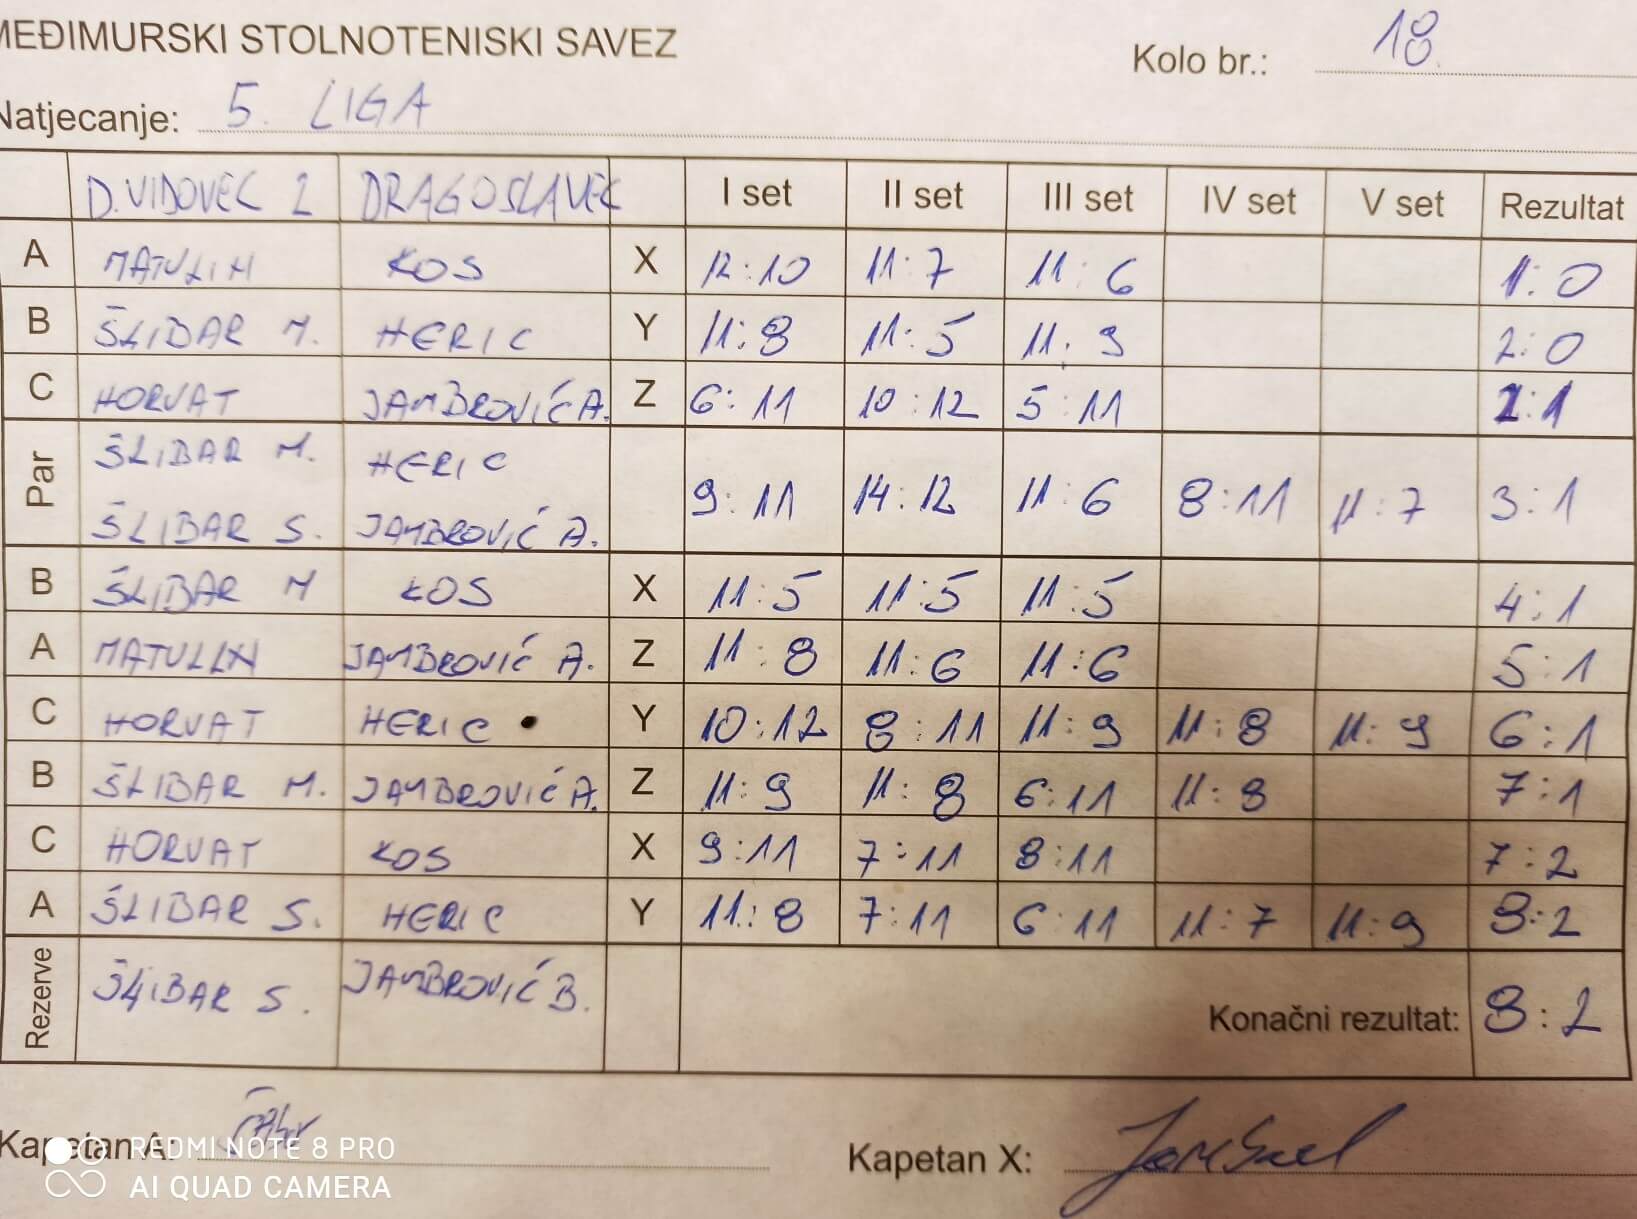 MEĐIMURSKI STOLNOTENISKI SAVEZ
Kolo br.: 18.
Natjecanje: 5. LIGA
D. VIDOVEC 2 DRAGOSLAVEC I set II set III set IV set V set Rezultat
A MATULIN KOS X 12:10 11:7 11:6 1:0
B ŠLIBAR M. HERIC Y 11:8 11:5 11:9 2:0
C HORVAT JAMBROVIĆ A. Z 6:11 10:12 5:11 2:1
Par ŠLIBAR M. HERIC 9:11 14:12 11:6 8:11 11:7 3:1
ŠLIBAR S. JAMBROVIĆ A.
B ŠLIBAR M KOS X 11:5 11:5 11:5 4:1
A MATULIN JAMBROVIĆ A. Z 11:8 11:6 11:6 5:1
C HORVAT HERIC Y 10:12 8:11 11:9 11:8 11:9 6:1
B ŠLIBAR M. JAMBROVIĆ A. Z 11:9 11:8 6:11 11:8 7:1
C HORVAT KOS X 9:11 7:11 8:11 7:2
A ŠLIBAR S. HERIC Y 11:8 7:11 6:11 11:7 11:9 8:2
Rezerve ŠLIBAR S. JAMBROVIĆ B. Konačni rezultat: 8:2
Kapetan A:
Kapetan X:
REDMI NOTE 8 PRO
AI QUAD CAMERA